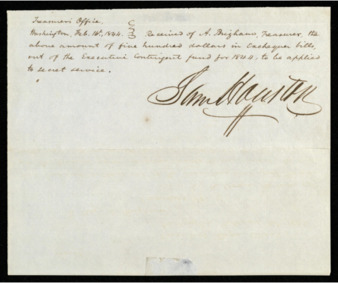 Treasurer's Office
Washington, Feb. 16th, 1844. Received of A. Brigham, Treasurer, the
above amount of five hundred dollars in Exchequer bills,
out of the Executive Contingent fund for 1844, to be applied
to secret service.
Sam Houston